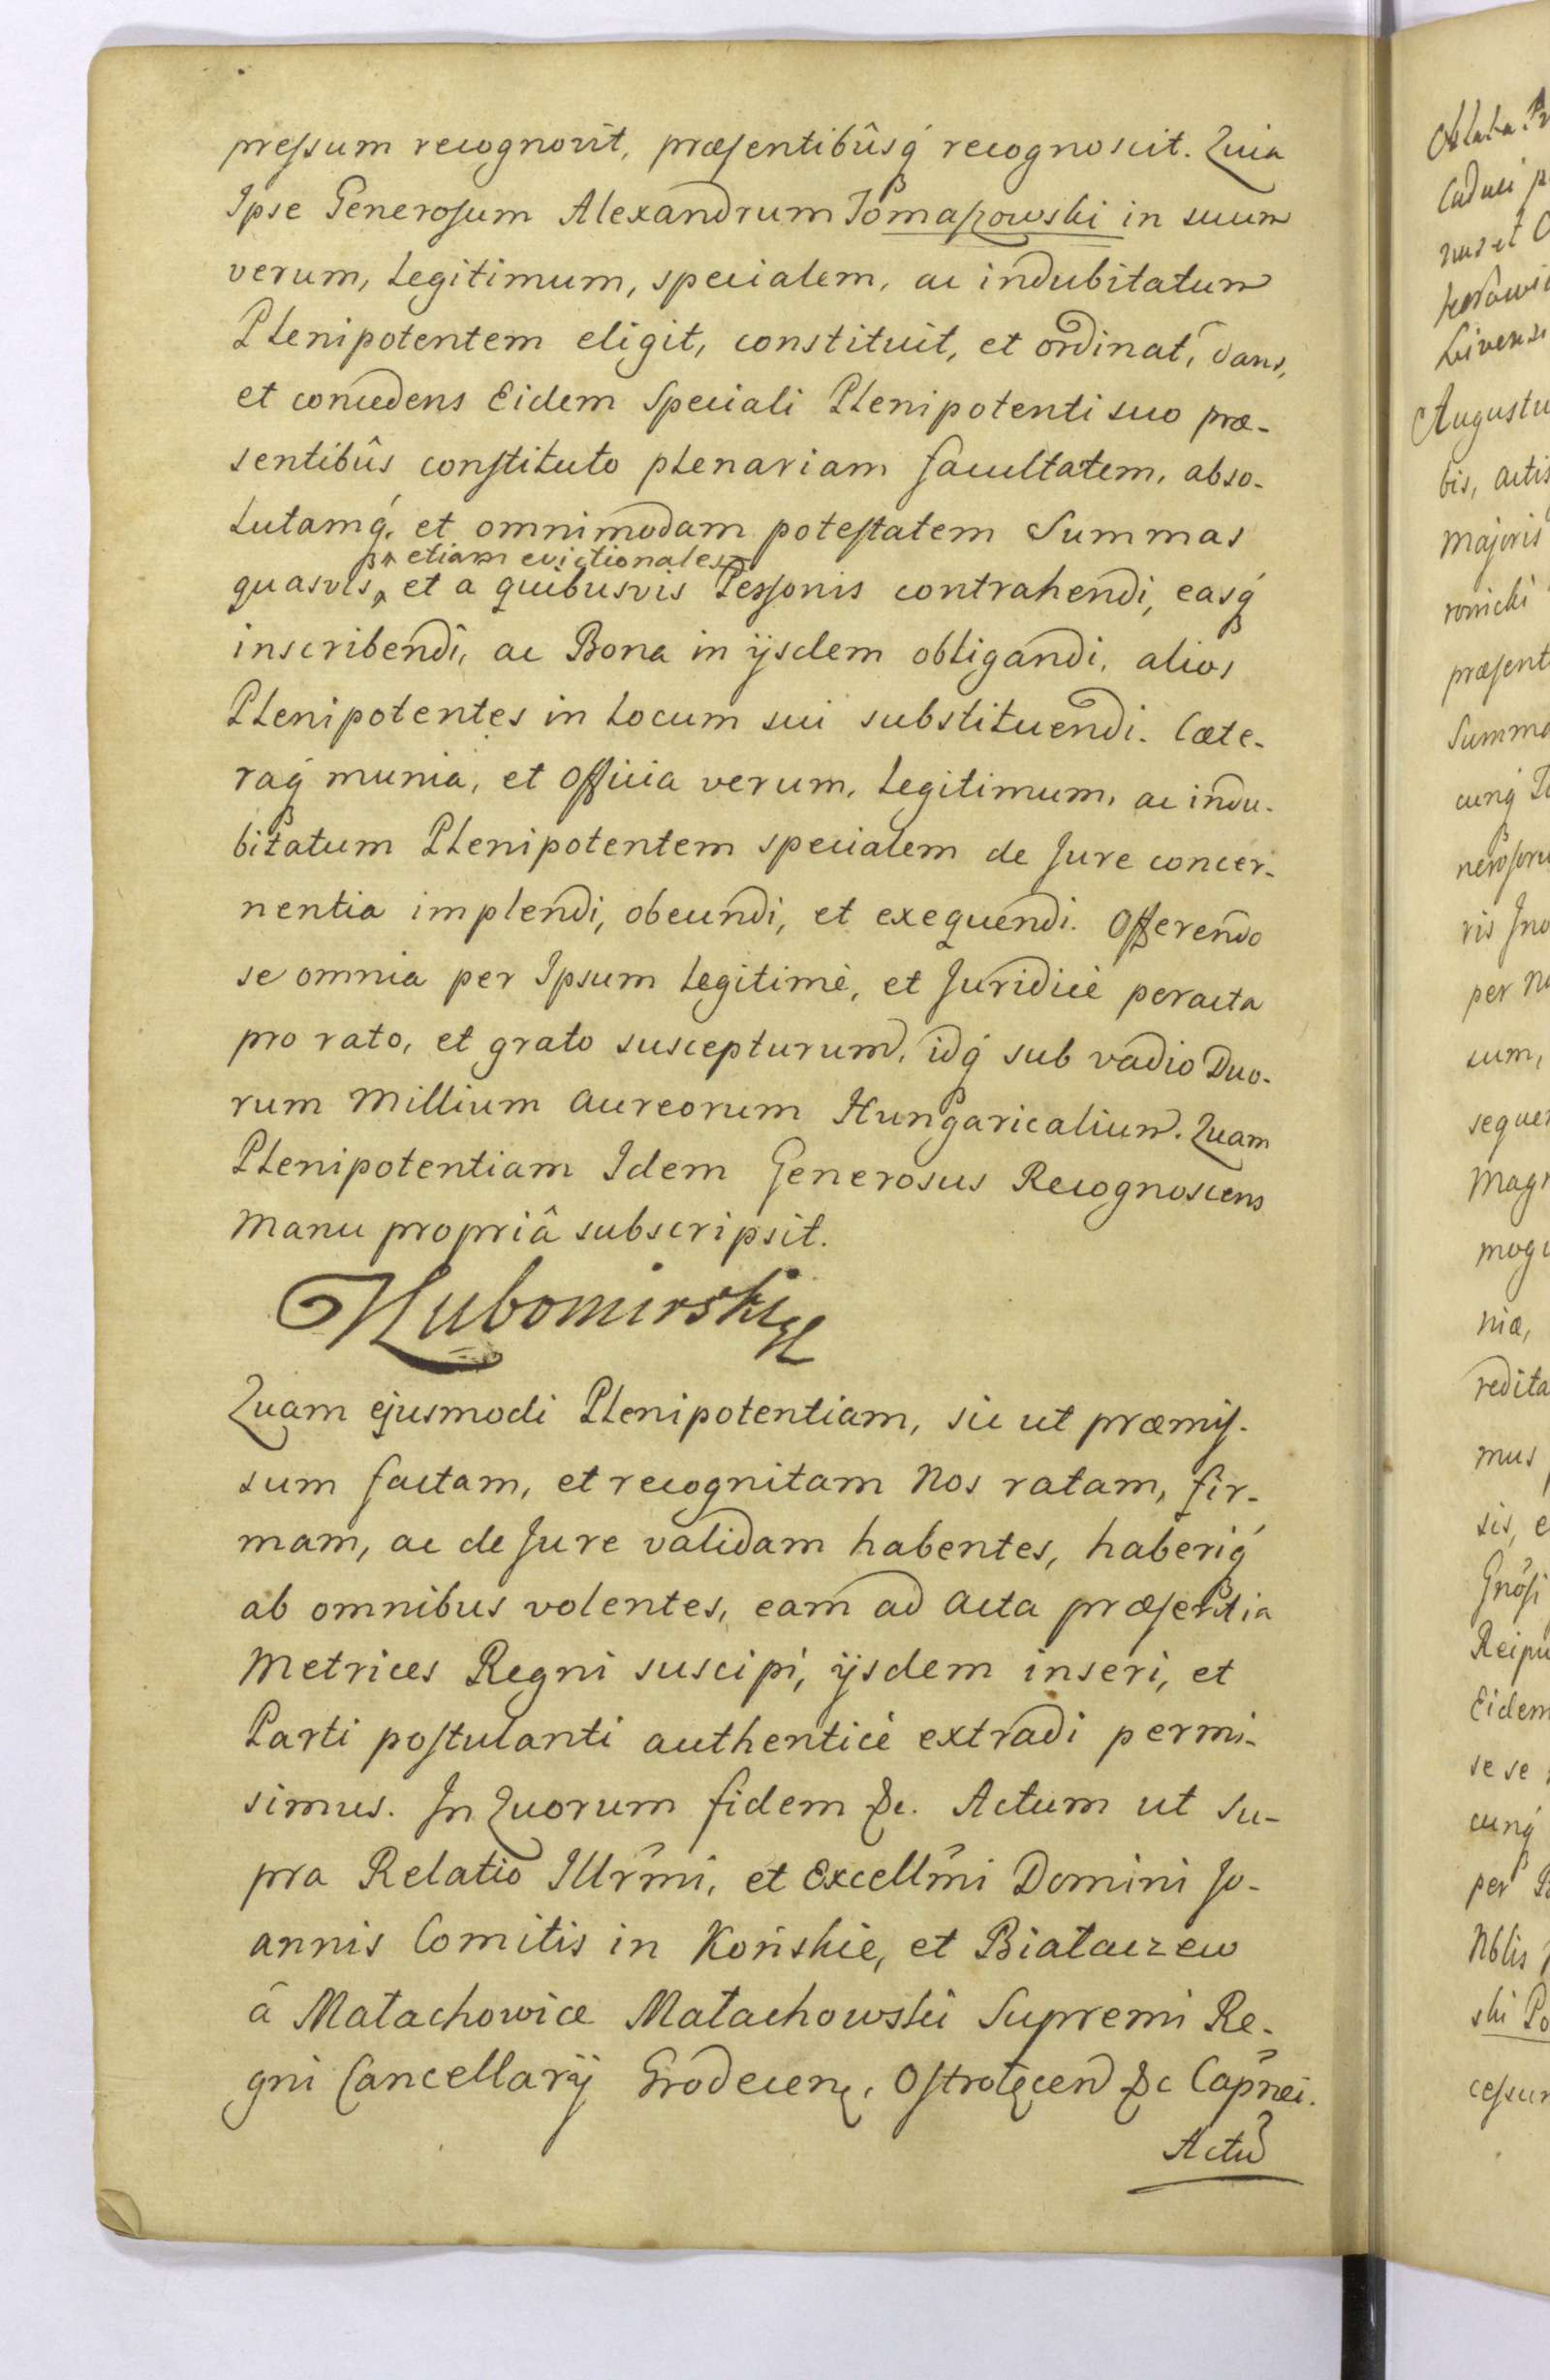 pressum recognovit, præsentibûsq́ recognoscit. Quia
Ipse Generosum Alexandrum Tomaszowski in suum
verum, legitimum, specialem, ac indubitatum
Plenipotentem eligit, constituit, et ordinat, dans,
et concedens Eidem Speciali Plenipotenti suo præ-
sentibûs constituto plenariam facultatem, abso-
lutamq́, et omnimodam potestatem Summas
etiam evictionales
quasvis, et a quibusvis Personis contrahendi, easq́
inscribendi, ac Bona in ijsdem obligandi, alios
Plenipotentes in locum sui substituendi. Cæte-
raq́ munia, et Officia verum, legitimum, ac indu-
bitatum Plenipotentem specialem de Jure concer-
nentia implendi, obeundi, et exequendi. Offerendo
se omnia per Ipsum legitimè, et Juridicè peracta
pro rato, et grato suscepturum, idq́ sub vadio Duo-
rum Millium Aureorum Hungaricalium. Quam
Plenipotentiam Idem Generosus Recognoscens
Manu propriâ subscripsit.
Lubomirski
Quam ejusmodi Plenipotentiam, sic ut præmis-
sum factam, et recognitam Nos ratam, fir-
mam, ac de Jure validam habentes, haberiq́
ab omnibus volentes, eam ad Acta præsentia
Metrices Regni suscipi, ijsdem inseri, et
Parti postulanti authenticè extradi permi-
simus. In Quorum fidem &c. Actum ut su-
pra Relatio Illrm̃i, et Excellm̃i Domini Jo-
annis Comitis in Końskie, et Białaczew
â Małachowice Małachowski Supremi Re-
gni Cancellarij Grodecen, Ostrołęcen &c Capñei.
Actu
Augustu
bis, actis
Majoris
ronichi
præsent
Summa
cunq́
per
cum,
seque
Magn
niæ,
redita
mus
sis, e
Reipu
Eidem
se se
cunq́
per
Nblis
ski Po